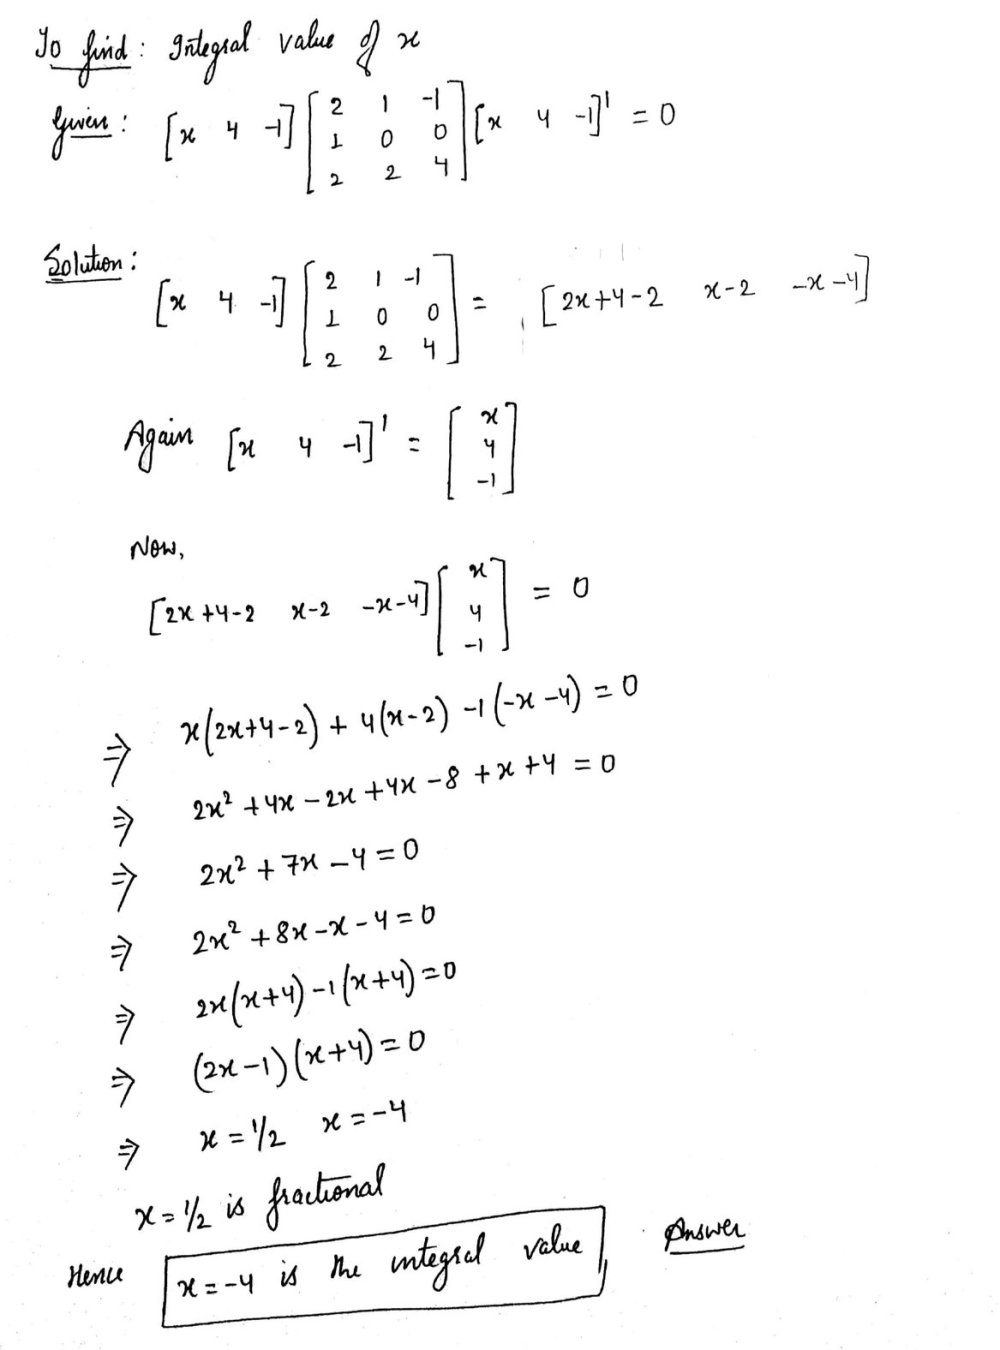 To find: Integral value of x
Given: [x 4 -1] [2 1 -1; 1 0 0; 2 2 4] [x 4 -1]' = 0
Solution:
[x 4 -1] [2 1 -1; 1 0 0; 2 2 4] = [2x+4-2 x-2 -x-4]
Again [x 4 -1]' = [x; 4; -1]
Now,
[2x+4-2 x-2 -x-4] [x; 4; -1] = 0
⇒ x(2x+4-2) + 4(x-2) -1(-x-4) = 0
⇒ 2x² + 4x - 2x + 4x - 8 + x + 4 = 0
⇒ 2x² + 7x - 4 = 0
⇒ 2x² + 8x - x - 4 = 0
⇒ 2x(x+4) - 1(x+4) = 0
⇒ (2x-1)(x+4) = 0
⇒ x = 1/2 x = -4
x = 1/2 is fractional
Hence x = -4 is the integral value Answer